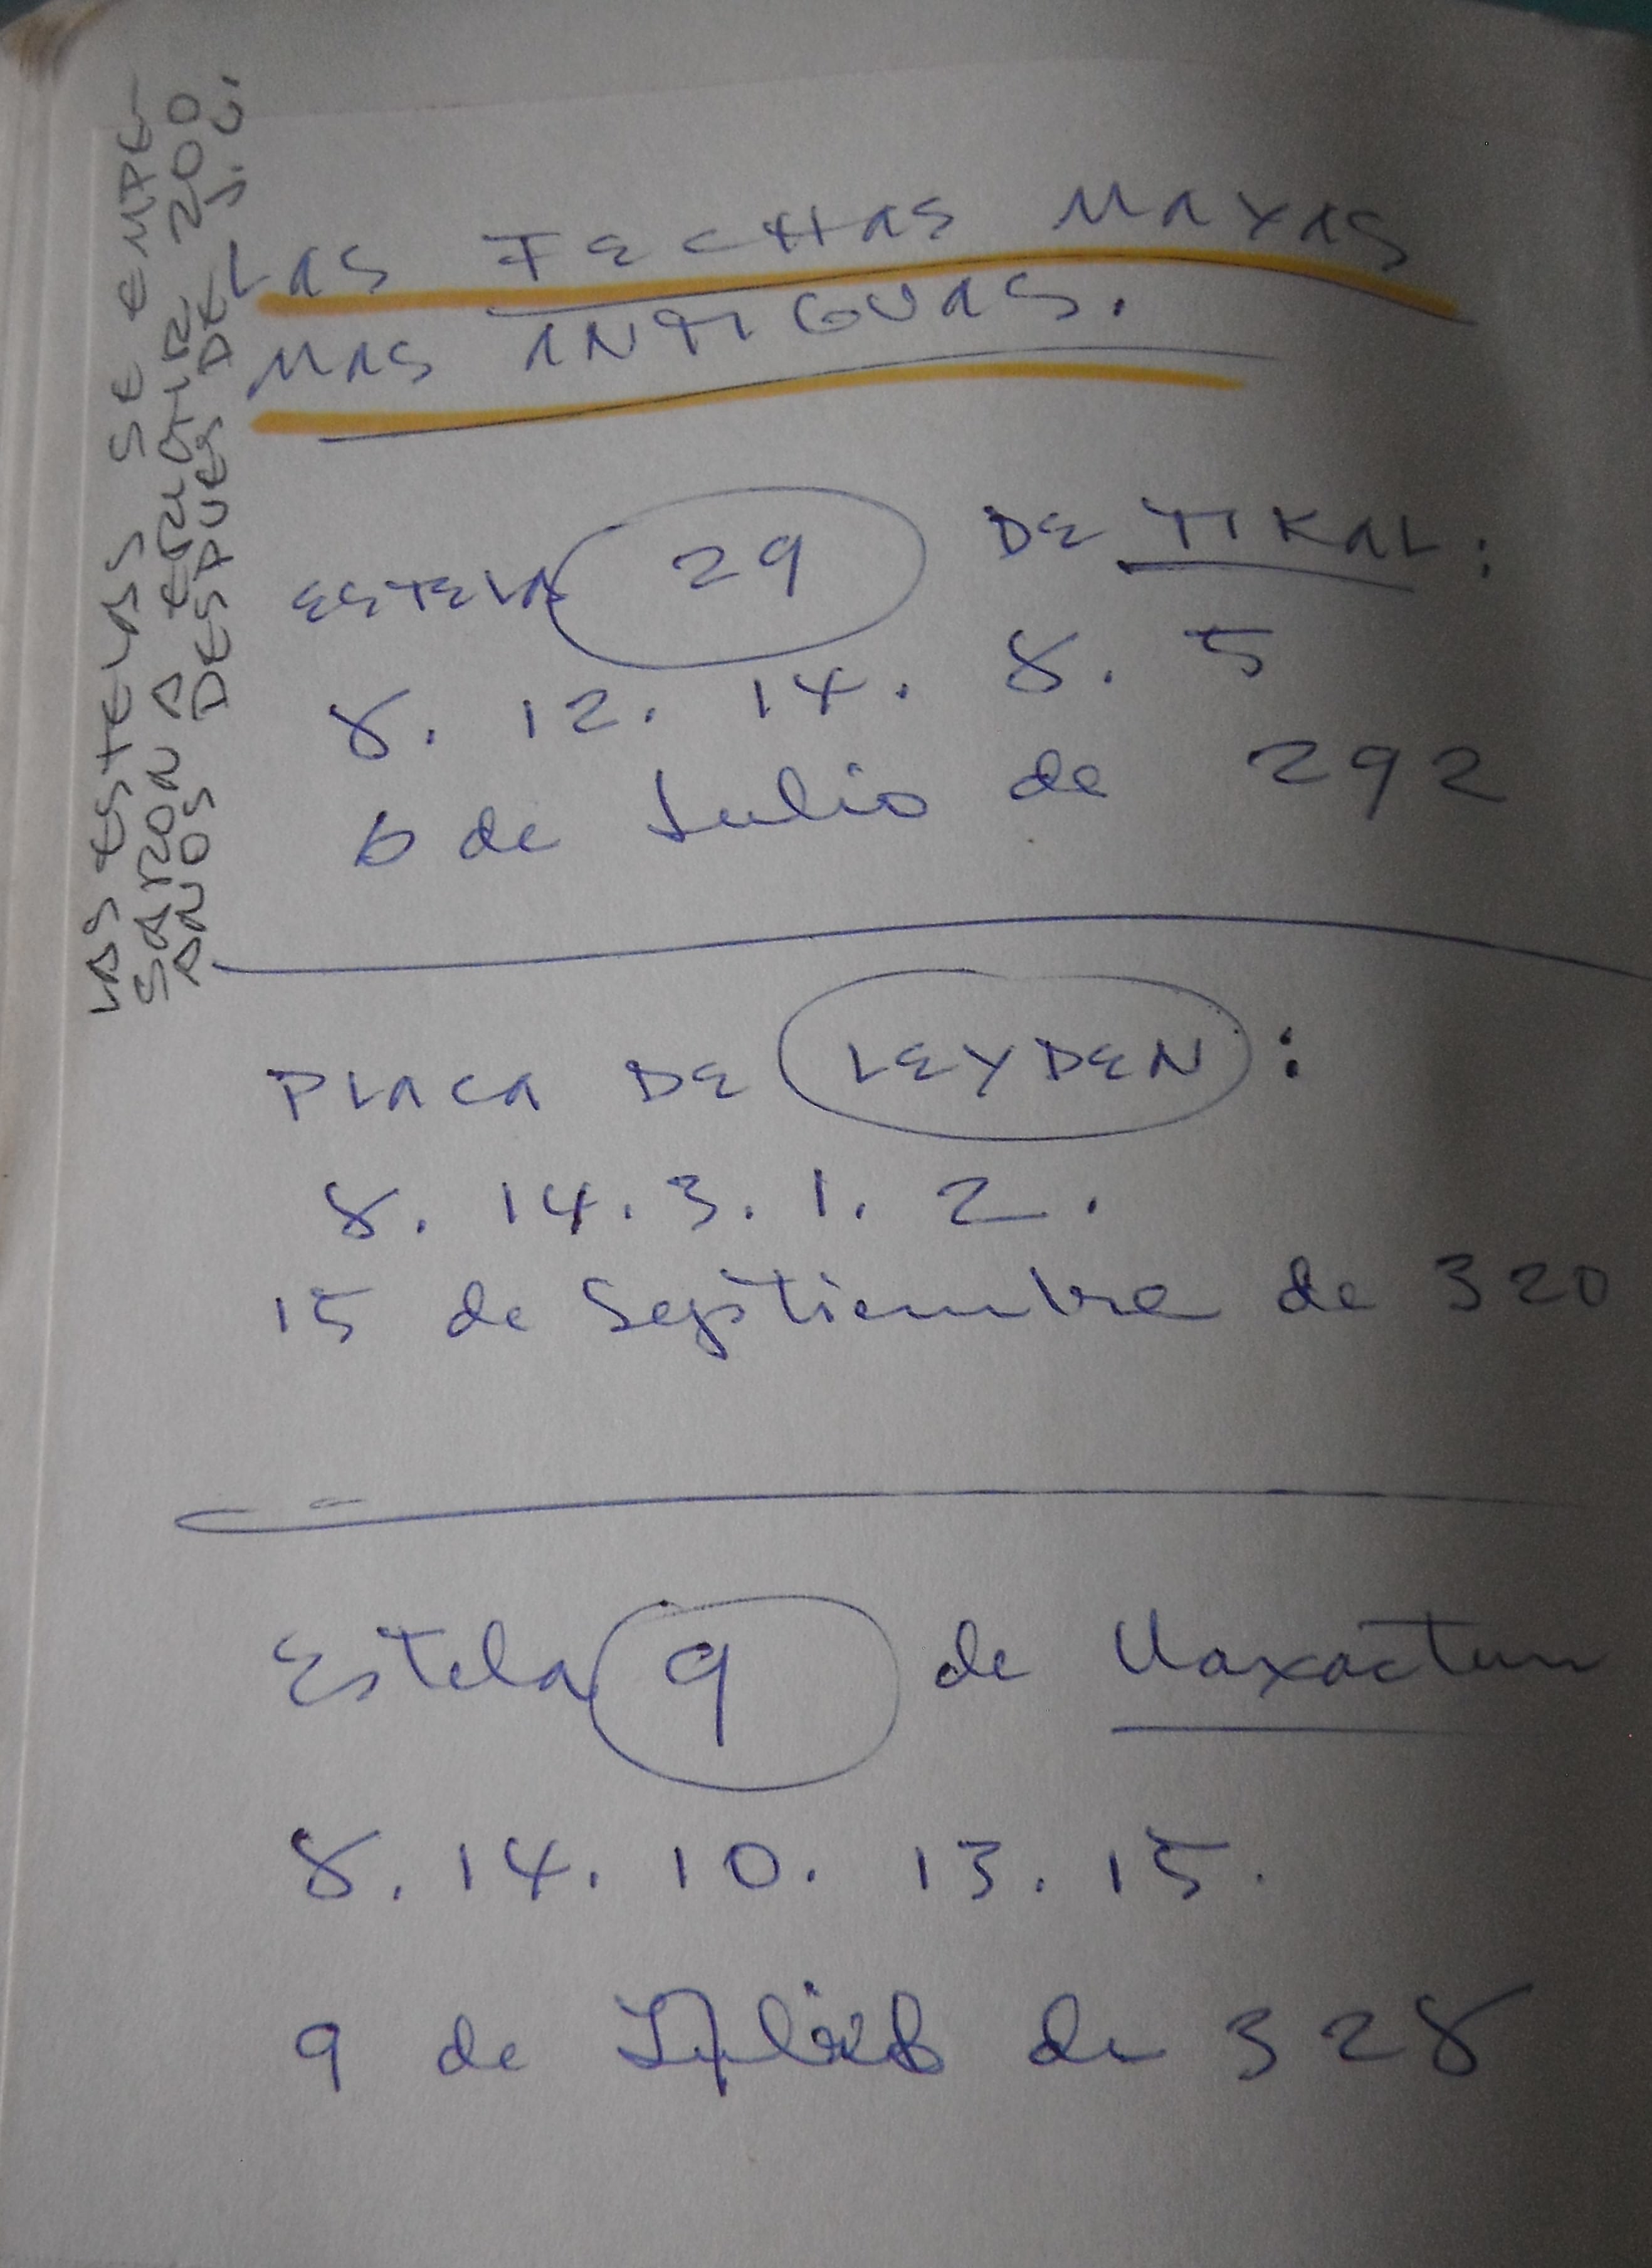 LAS ESTELAS SE EMPE-
SARON A ERUDTIR 200
AÑOS DESPUES DE J.C.
LAS FECHAS MAYAS
MAS ANTIGUAS.
ESTELA 29 DE TIKAL:
8. 12. 14. 8. 5
6 de Julio de 292
PLACA DE LEYDEN:
8. 14. 3. 1. 2.
15 de Septiembre de 320
Estela 9 de Uaxactun
8. 14. 10. 13. 15.
9 de de 328